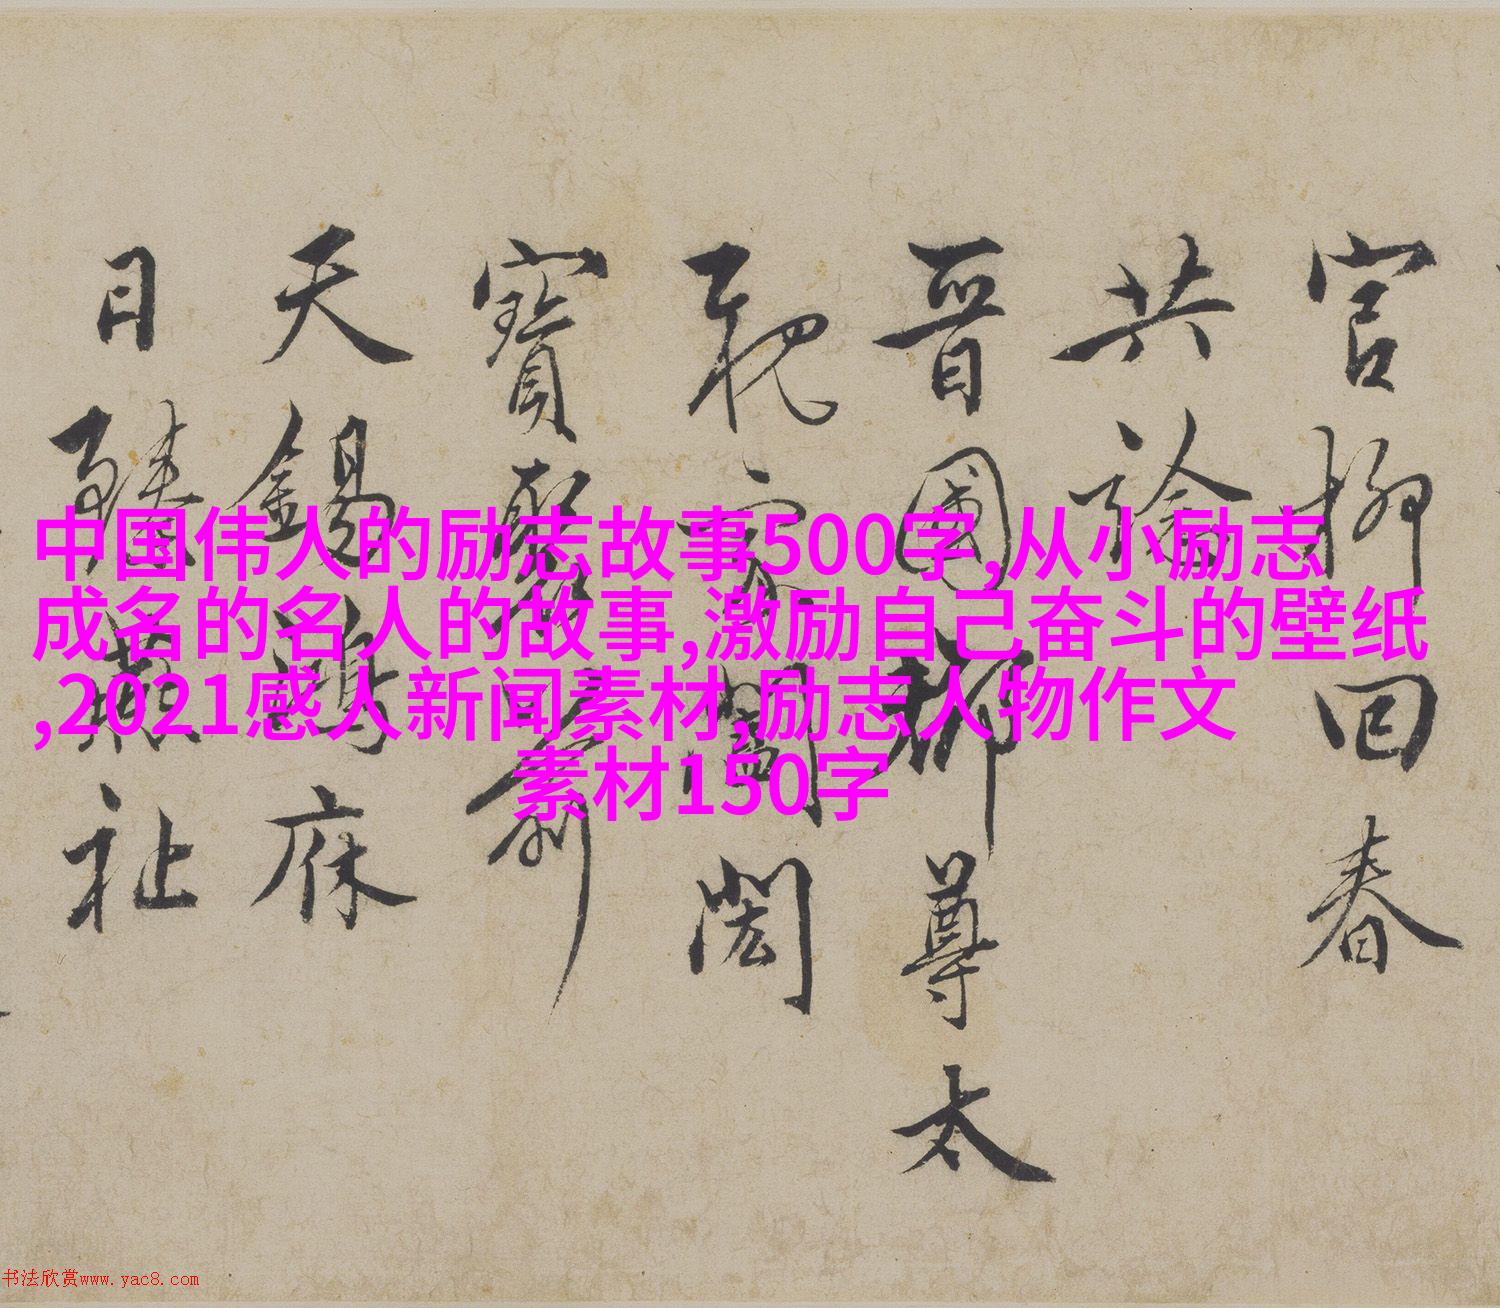 官柳回春
共論
晉國
尊太
家閫
閎
寶
天錫
庥
日臻
祉
中国伟人的励志故事500字,从小励志
成名的名人的故事,激励自己奋斗的壁纸
,2021感人新闻素材,励志人物作文
素材150字
书法欣赏www.yac8.com